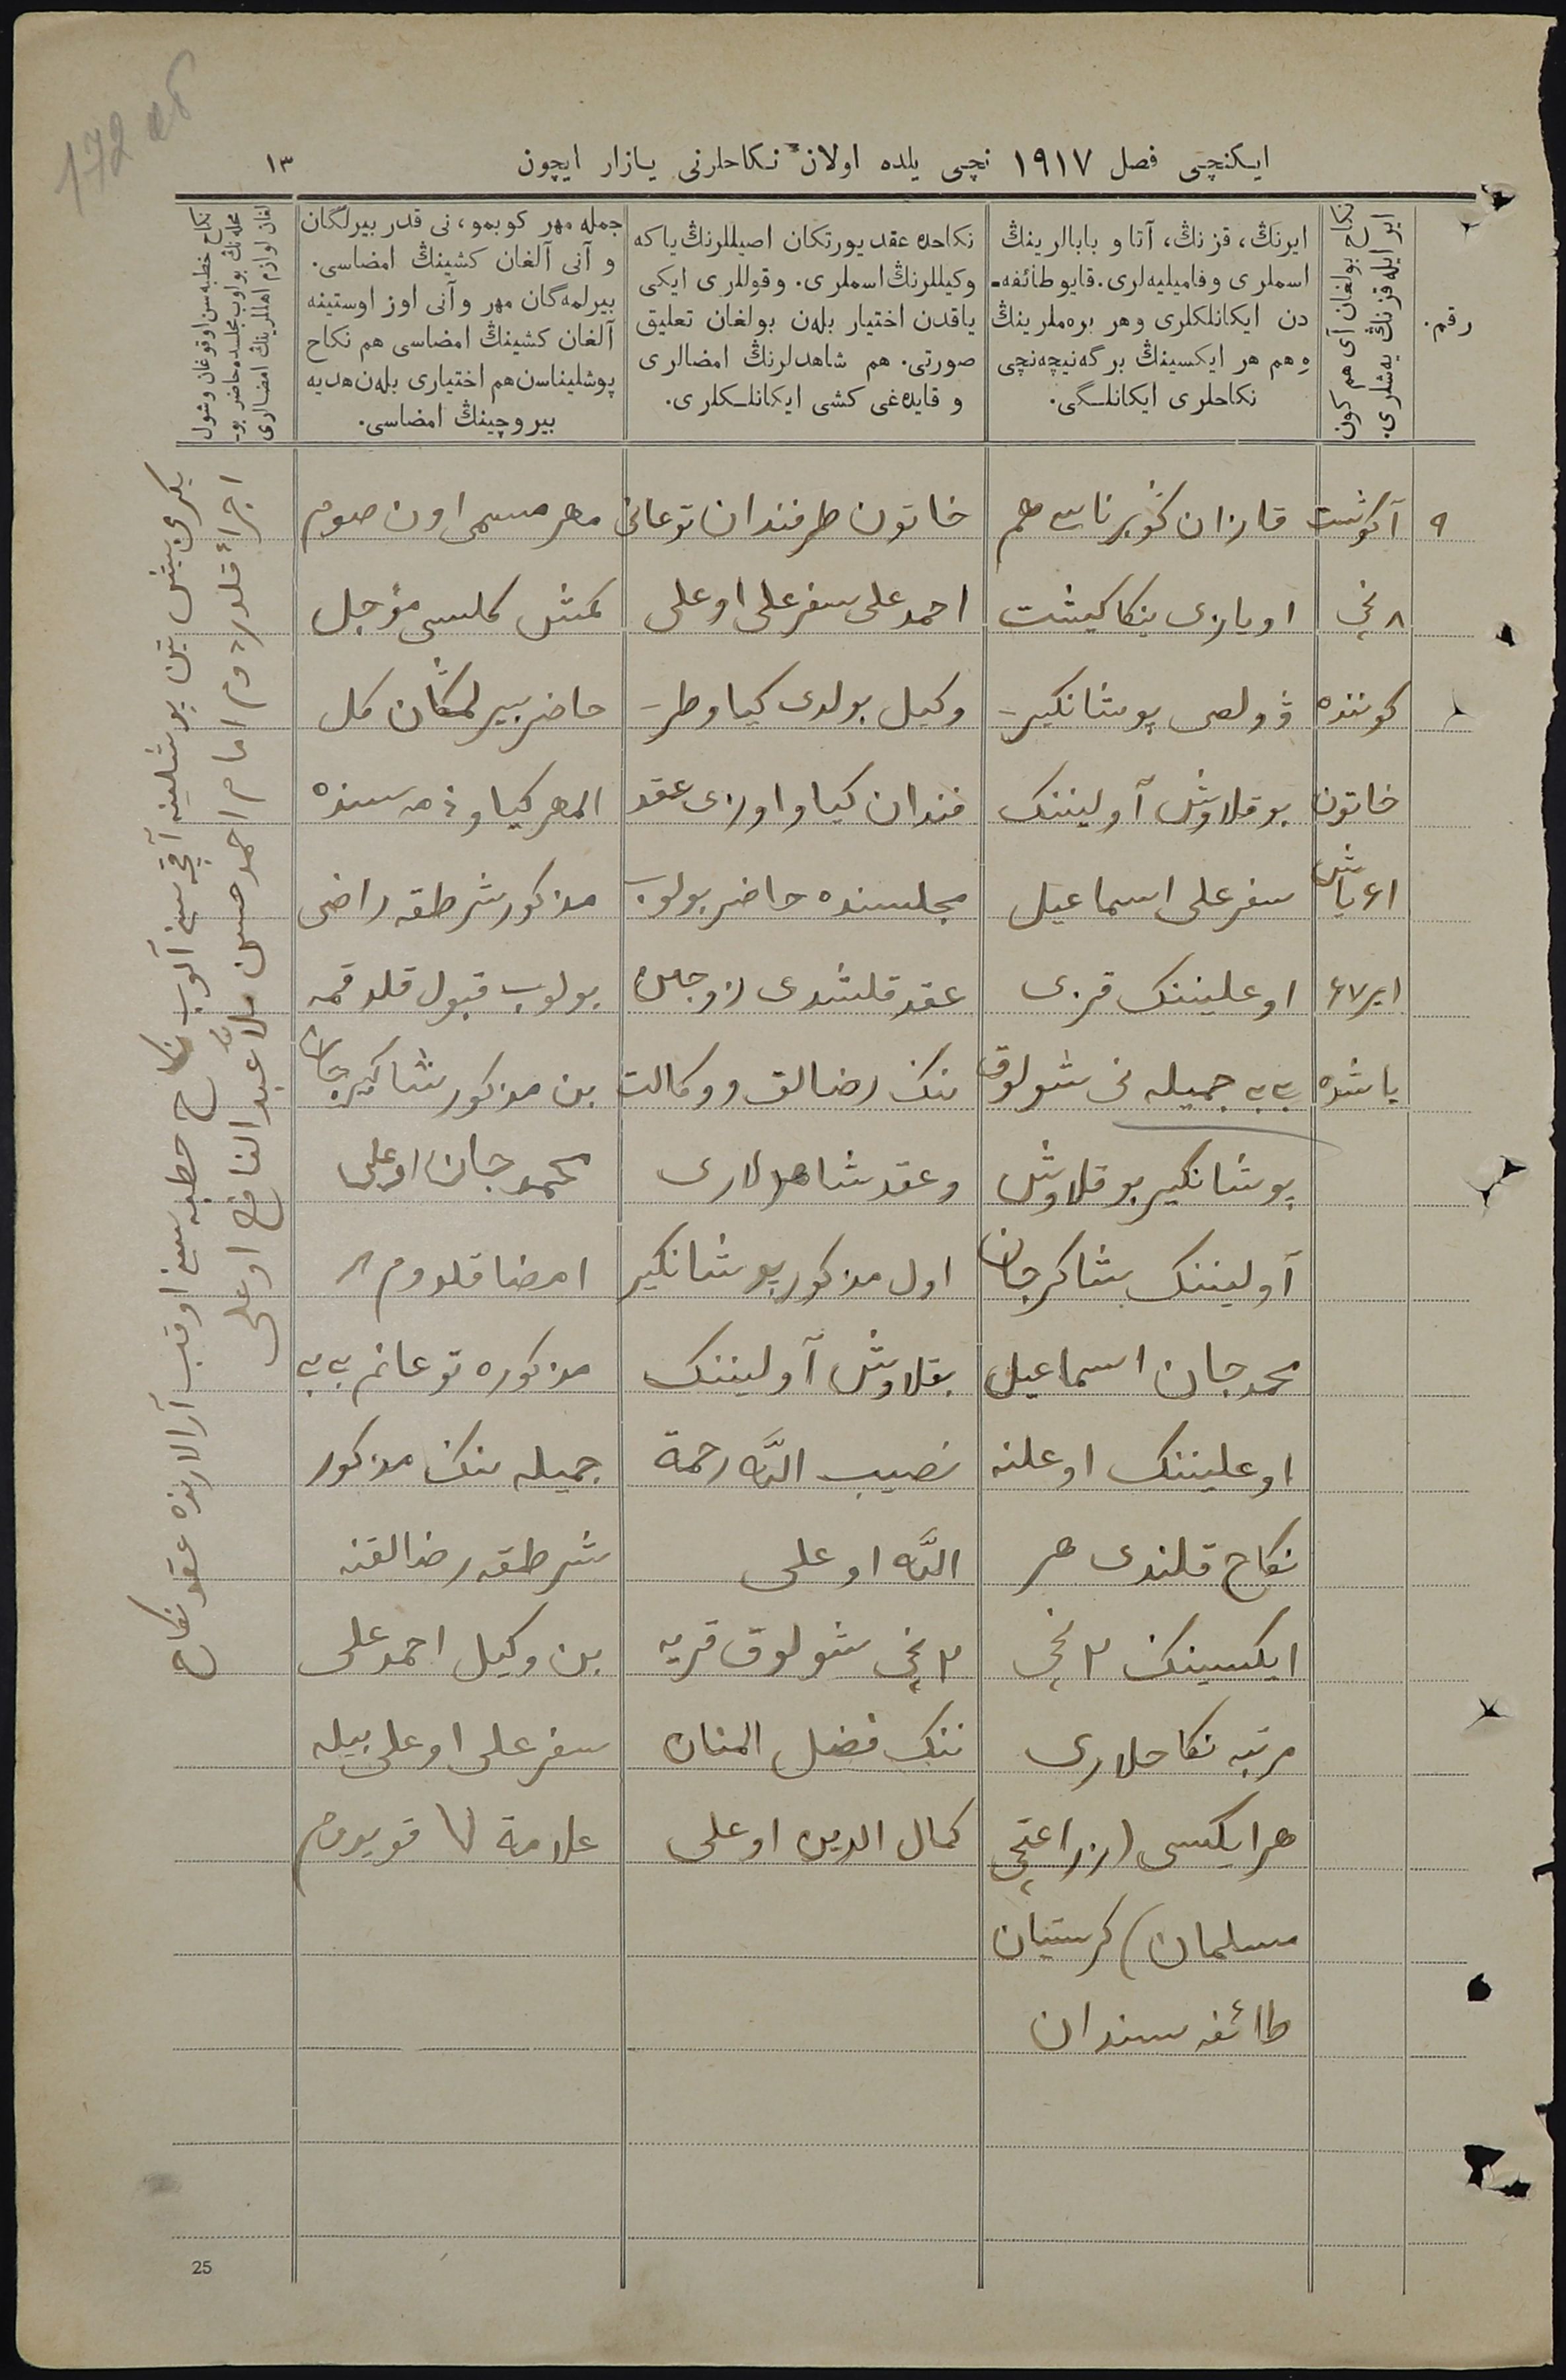 172 об
ایکنچی فصل ۱۹۱۷ نچی یلده اولان نکاحلرنی یازار ایچون
۱۳
رقم.
نکاح بولغان آی هم کون
ایر ایله قزنڭ یه‌شلری.
ایرنڭ، قزنڭ، آتا و بابالرینڭ
اسملری وفامیلیه‌لری. قایو طائفه‌ـ
دن ایکانلکلری وهر بره‌ملرینڭ
وهم هر ایکسینڭ برگه نیچه‌نچی
نکاحلری ایکانلـگی.
نکاحده عقد یورتکان اصیللرنڭ یا که
وکیللرنڭ اسملری. وقوللری ایکی
یاقدن اختیار بله‌ن بولغان تعلیق
صورتی. هم شاهدلرنڭ امضالری
و قایده‌غی کشی ایکانلـکلری.
جمله مهر کوبمو، نی قدر بیرلگان
و آنی آلغان کشینڭ امضاسی.
بیرلمه‌گان مهر وآنی اوز اوستینه
آلغان کشینڭ امضاسی هم نکاح
پوشلیناسن هم اختیاری بله‌ن هدیه
بیروچینڭ امضاسی.
نکاح خطبه‌سن اوقوغان وشول
محله‌نڭ بولوب مجلسده حاضر بو۔
لغان لوازم اهللرینڭ امضالری
۹
آگوشت
۸ نچی
کوننده
خاتون
۶۱ یاش
ایر ۶۷
یاشده
قازان گوبرناسی هم
اویازی ینکا کیشت
ڤولصی پوشانگیر
بوقلاوش آولیننک
سفرعلی اسماعیل
اوعلیننک قزی
بی بی جمیله نی شولوق
پوشانگیر بوقلاوش
آولیننک شاکرجان
محمدجان اسماعیل
اوعلیننک اوعلنه
نکاح قلندی هر
ایکسینک ۲ نچی
مرتبه نکاحلاری
هر ایکسی (زراعتچی
مسلمان) کرستیان
طائفه سندان
خاتون طرفندان توعانی
احمدعلی سفرعلی اوعلی
وکیل بولدی کیاو طر
فندان کیاو اوزی عقد
مجلسنده حاضر بولوب
عقد قلشدی زوجین
ننک رضالق ووکالت
وعقد شاهدلاری
اول مذکور پوشانگیر
بقلاوش آولیننک
نصیب الله رحمة
الله اوعلی
۲ نچی شولوق قریه
ننک فضل المنان
کمال الدین اوعلی
مهر مسمی اون صوم
کمش کلسی مؤجل
حاضر بیرلمکان کل
المهر کیاو ذمه سنده
مذکور شرطقه راضی
بولوب قبول قلدقمه
بن مذکور شاکیرجان
محمدجان اوعلی
امضا قلدوم
مذکوره توعانم بی بی
جمیله ننک مذکور
شرطقه رضالقنه
بن وکیل احمدعلی
سفرعلی اوعلی بیله
علامة قویدوم
یکرمی بیش تین پوشلینه آقچه سین آلوب نکاح خطبه سین اوقب آرالارنده عقد نکاح
اجراء قلدردم امام احمد حسن ملا عبد النافع اوعلی
25